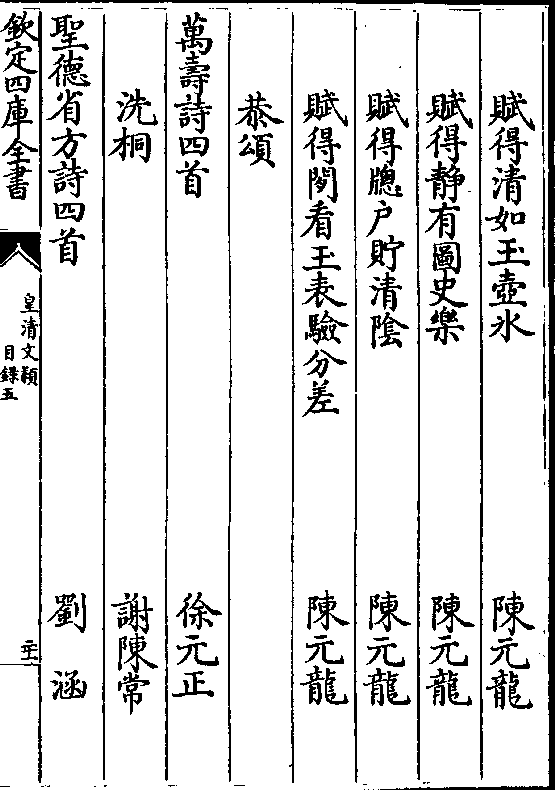 賦得清如玉壺冰　陳元龍
賦得静有圖史樂　陳元龍
賦得牕户貯清陰　陳元龍
賦得閒看玉表驗分差　陳元龍
恭頌
萬壽詩四首　徐元正
洗桐　謝陳常
聖德省方詩四首　劉涵
欽定四庫全書
皇清文穎
目録五